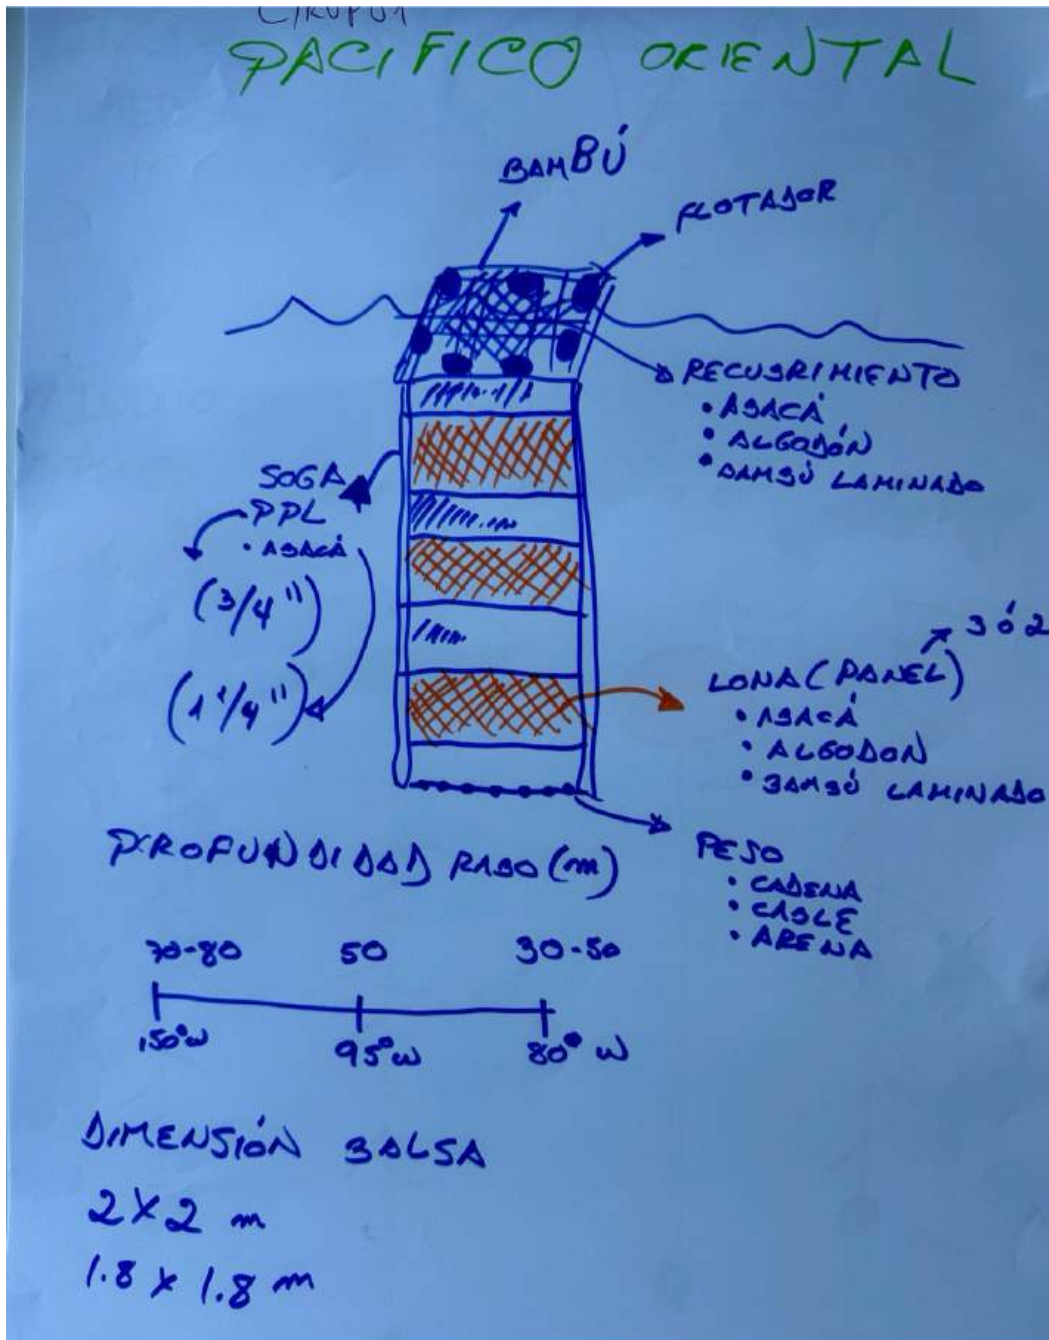 GRUPO 1
PACIFICO ORIENTAL
BAMBÚ
FLOTADOR
RECUBRIMIENTO
• ABACÁ
• ALGODÓN
• BAMBÚ LAMINADO
SOGA
PPL
• ABACÁ
(3/4")
(1 1/4")
3 ó 2
LONA (PANEL)
• ABACÁ
• ALGODON
• BAMBÚ LAMINADO
PESO
• CADENA
• CABLE
• ARENA
PROFUNDIDAD RABO (m)
70-80 50 30-50
150°W 95°W 80°W
DIMENSIÓN BALSA
2 X 2 m
1.8 x 1.8 m